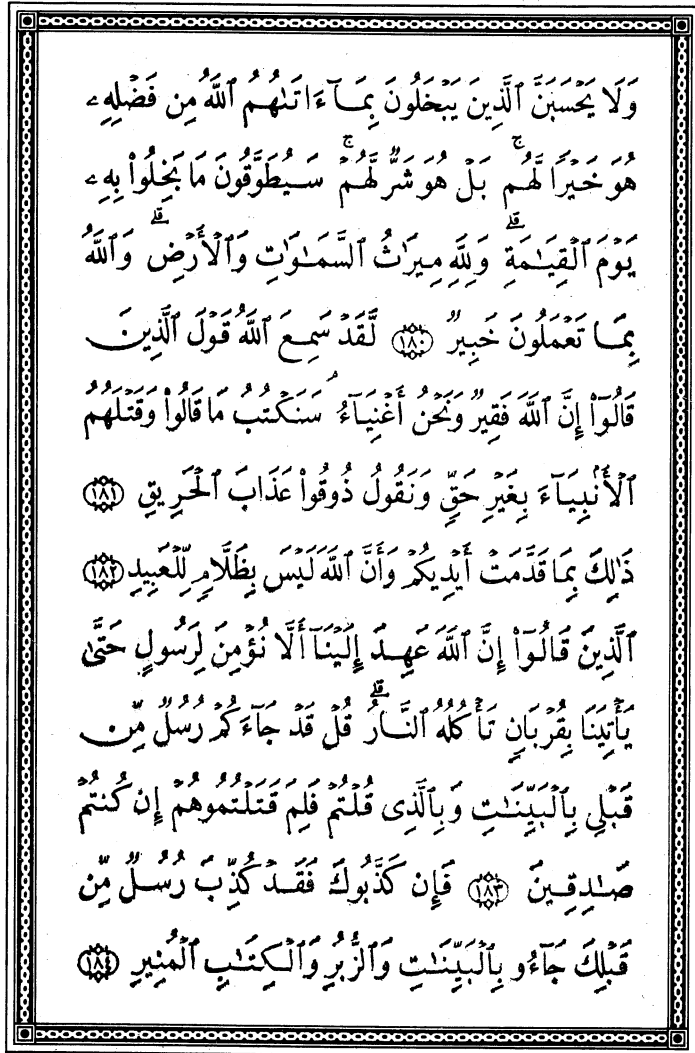 وَلَا يَحْسَبَنَّ ٱلَّذِينَ يَبْخَلُونَ بِمَآ ءَاتَىٰهُمُ ٱللَّهُ مِن فَضْلِهِۦ
هُوَ خَيْرًا لَّهُم ۖ بَلْ هُوَ شَرٌّ لَّهُمْ ۖ سَيُطَوَّقُونَ مَا بَخِلُوا۟ بِهِۦ
يَوْمَ ٱلْقِيَٰمَةِ ۗ وَلِلَّهِ مِيرَٰثُ ٱلسَّمَٰوَٰتِ وَٱلْأَرْضِ ۗ وَٱللَّهُ
بِمَا تَعْمَلُونَ خَبِيرٌ ﴿١٨٠﴾ لَّقَدْ سَمِعَ ٱللَّهُ قَوْلَ ٱلَّذِينَ
قَالُوٓا۟ إِنَّ ٱللَّهَ فَقِيرٌ وَنَحْنُ أَغْنِيَآءُ ۘ سَنَكْتُبُ مَا قَالُوا۟ وَقَتْلَهُمُ
ٱلْأَنۢبِيَآءَ بِغَيْرِ حَقٍّ وَنَقُولُ ذُوقُوا۟ عَذَابَ ٱلْحَرِيقِ ﴿١٨١﴾
ذَٰلِكَ بِمَا قَدَّمَتْ أَيْدِيكُمْ وَأَنَّ ٱللَّهَ لَيْسَ بِظَلَّامٍ لِّلْعَبِيدِ ﴿١٨٢﴾
ٱلَّذِينَ قَالُوٓا۟ إِنَّ ٱللَّهَ عَهِدَ إِلَيْنَآ أَلَّا نُؤْمِنَ لِرَسُولٍ حَتَّىٰ
يَأْتِيَنَا بِقُرْبَانٍ تَأْكُلُهُ ٱلنَّارُ ۗ قُلْ قَدْ جَآءَكُمْ رُسُلٌ مِّن
قَبْلِى بِٱلْبَيِّنَٰتِ وَبِٱلَّذِى قُلْتُمْ فَلِمَ قَتَلْتُمُوهُمْ إِن كُنتُمْ
صَٰدِقِينَ ﴿١٨٣﴾ فَإِن كَذَّبُوكَ فَقَدْ كُذِّبَ رُسُلٌ مِّن
قَبْلِكَ جَآءُو بِٱلْبَيِّنَٰتِ وَٱلزُّبُرِ وَٱلْكِتَٰبِ ٱلْمُنِيرِ ﴿١٨٤﴾